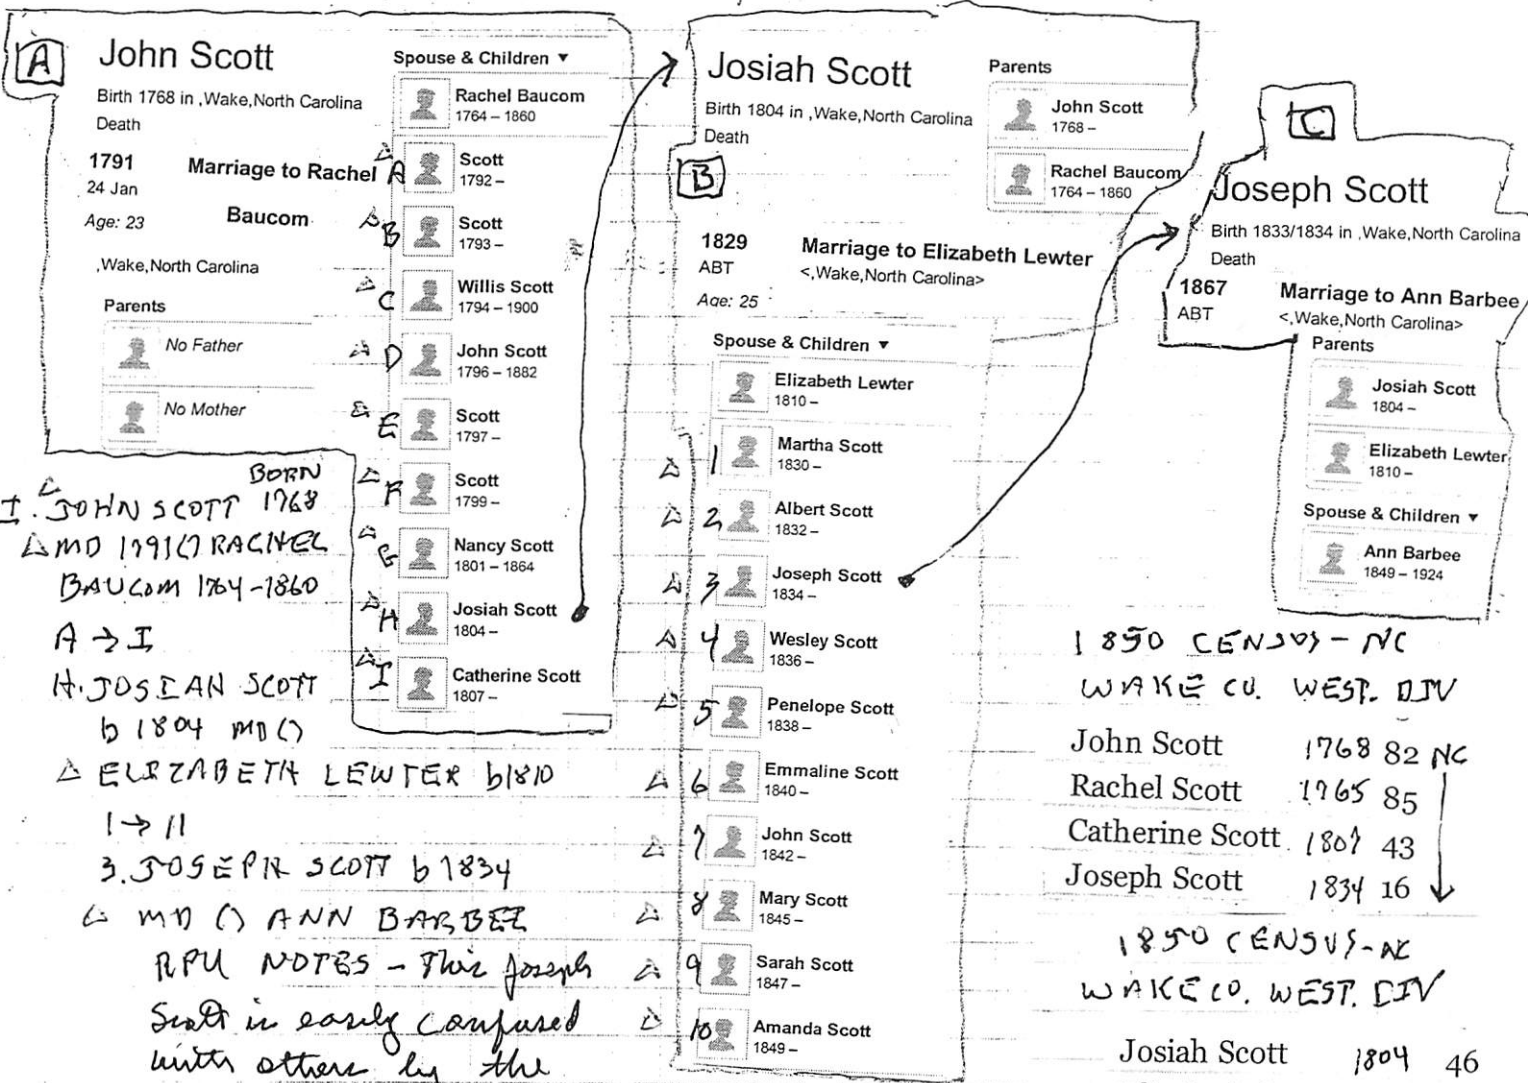 A
John Scott
Birth 1768 in ,Wake,North Carolina
Death
1791
24 Jan
Age: 23
Marriage to Rachel
Baucom
,Wake,North Carolina
Parents
No Father
No Mother
Spouse & Children ▼
Rachel Baucom
1764 – 1860
A Scott
1792 –
B Scott
1793 –
C Willis Scott
1794 – 1900
D John Scott
1796 – 1882
E Scott
1797 –
F Scott
1799 –
G Nancy Scott
1801 – 1864
H Josiah Scott
1804 –
I Catherine Scott
1807 –
BORN
I. JOHN SCOTT 1768
MD 1791 () RACHEL
BAUCOM 1764-1860
A → I
H. JOSIAH SCOTT
b 1804 MD ()
ELIZABETH LEWTER b1810
1 → 11
3. JOSEPH SCOTT b 1834
MD () ANN BARBEE
RPU NOTES - This Joseph
Scott is easily confused
with others by the
B
Josiah Scott
Birth 1804 in ,Wake,North Carolina
Death
Parents
John Scott
1768 –
Rachel Baucom
1764 – 1860
1829
ABT
Age: 25
Marriage to Elizabeth Lewter
<,Wake,North Carolina>
Spouse & Children ▼
Elizabeth Lewter
1810 –
1 Martha Scott
1830 –
2 Albert Scott
1832 –
3 Joseph Scott
1834 –
4 Wesley Scott
1836 –
5 Penelope Scott
1838 –
6 Emmaline Scott
1840 –
7 John Scott
1842 –
8 Mary Scott
1845 –
9 Sarah Scott
1847 –
10 Amanda Scott
1849 –
C
Joseph Scott
Birth 1833/1834 in ,Wake,North Carolina
Death
1867
ABT
Marriage to Ann Barbee
<,Wake,North Carolina>
Parents
Josiah Scott
1804 –
Elizabeth Lewter
1810 –
Spouse & Children ▼
Ann Barbee
1849 – 1924
1850 CENSUS - NC
WAKE CO. WEST. DIV
John Scott 1768 82 NC
Rachel Scott 1765 85
Catherine Scott 1807 43
Joseph Scott 1834 16
1850 CENSUS - NC
WAKE CO. WEST. DIV
Josiah Scott 1804 46